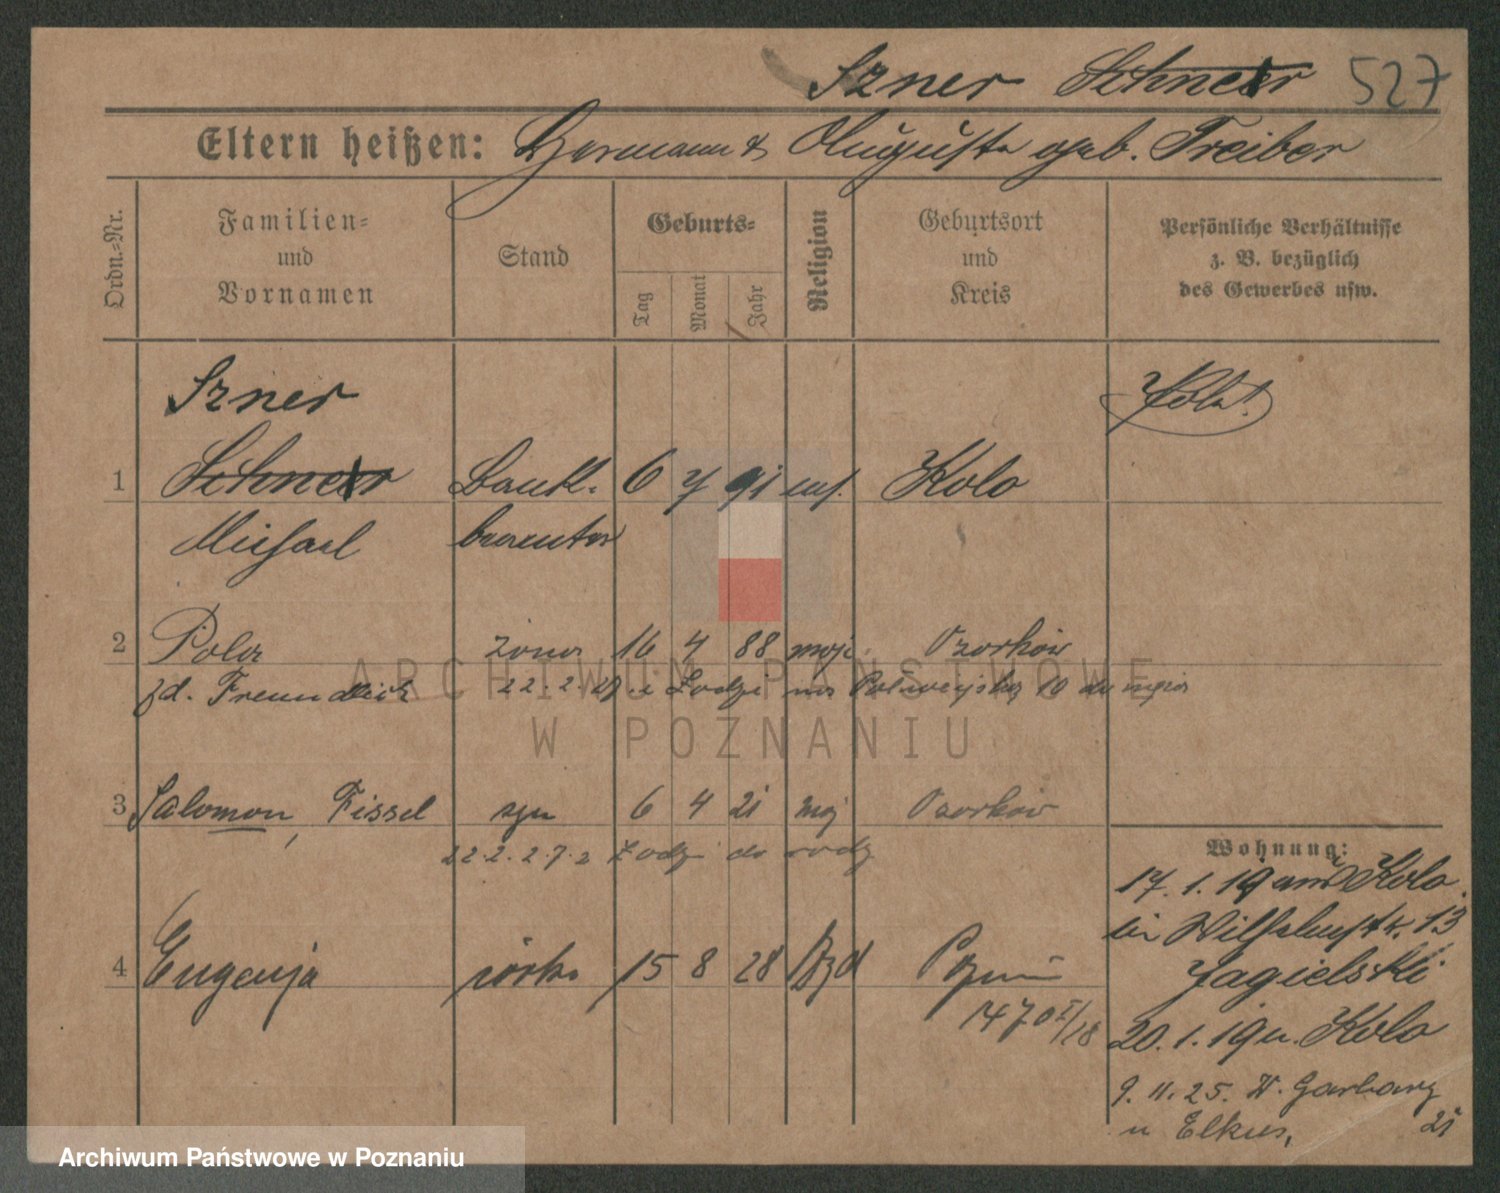 Szner Schner 527
Eltern heißen: Hermann & Auguste geb. Treiber
Ordn.-Nr.
Familien- und Vornamen
Stand
Geburts-
Tag
Monat
Jahr
Religion
Geburtsort und Kreis
Persönliche Verhältnisse z. B. bezüglich des Gewerbes usw.
Szner
1 Schner Bankl. 6 7 91 Kolo
Michael beamter
2 Pola żona 16 4 88 mojż. Ozorków
zd. Freundlich 22.2.27 z Łodzi 10
3 Salomon, Fissel syn 6 4 21 mojż Ozorków
22.2.27 z Łodzi do
4 Eugenja córka 15 8 28 Poznań
470 I/28
Wohnung:
17.1.19 aus Kolo
bei Wilhelmstr. 13
Jagielski
20.1.19 n. Kolo
9.11.25. W. Garbary 21
u Elkus,
ARCHIWUM PAŃSTWOWE
W POZNANIU
Archiwum Państwowe w Poznaniu